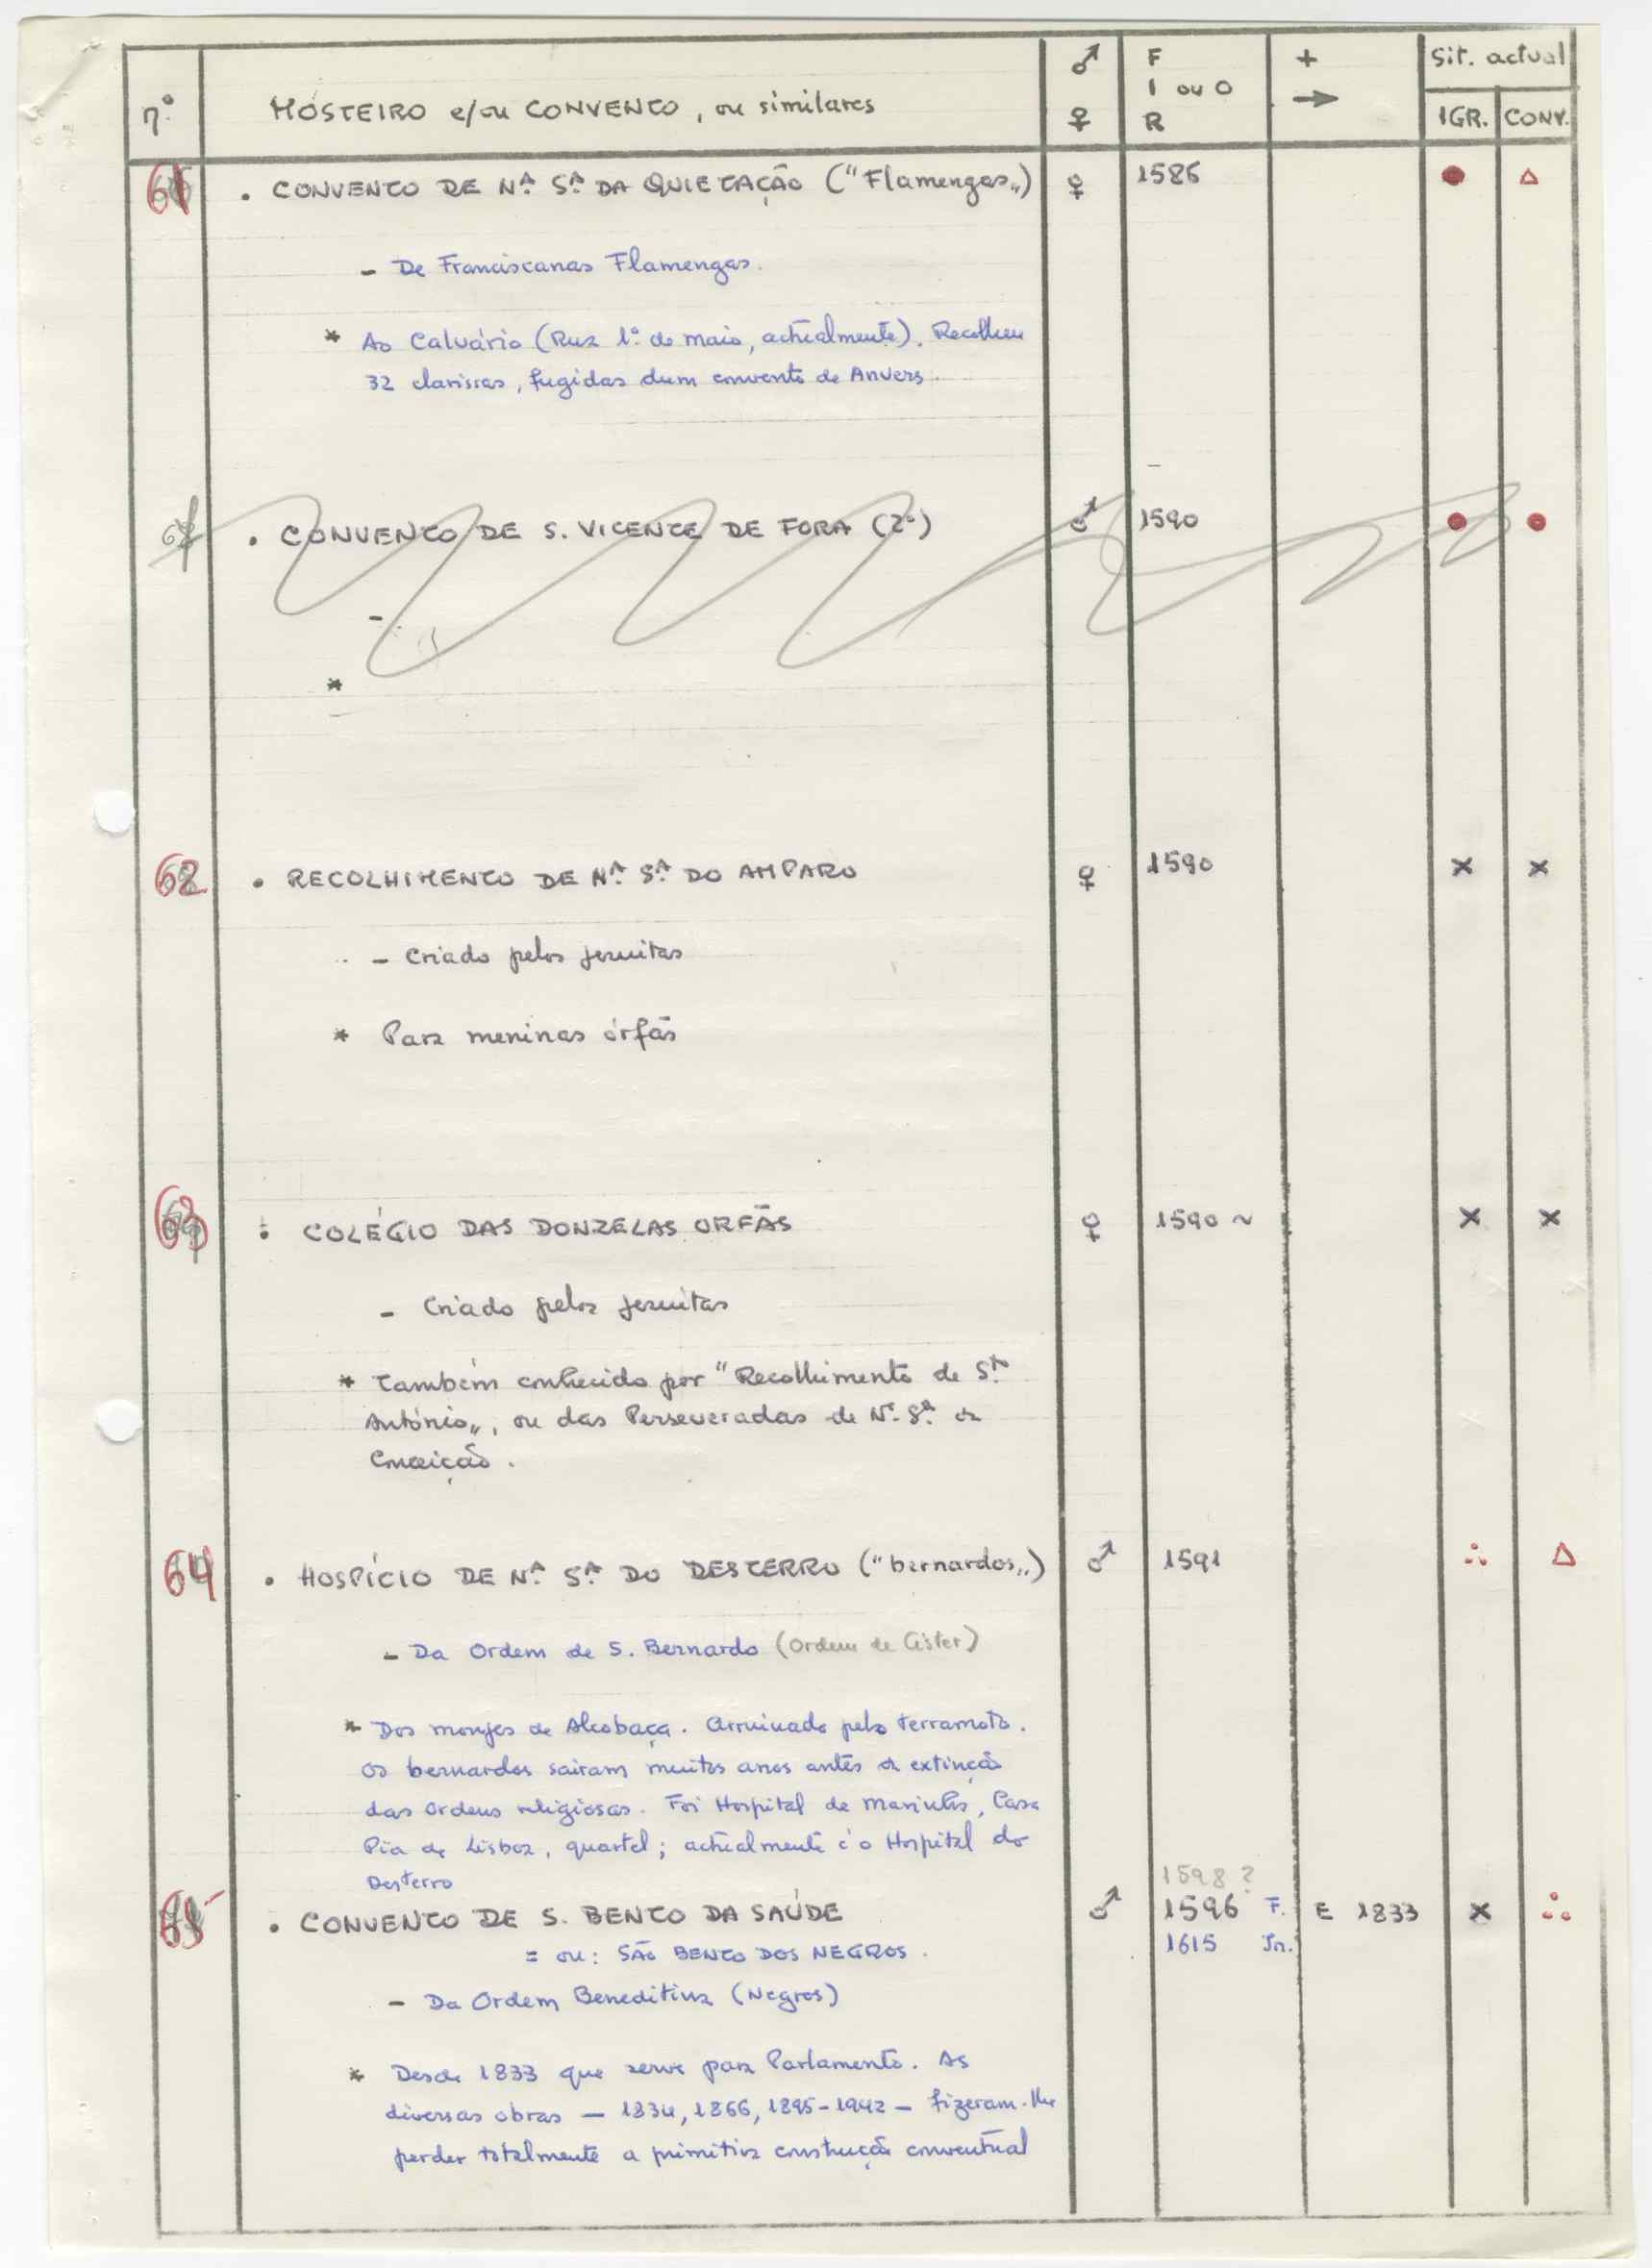 nº MOSTEIRO e/ou CONVENTO, ou similares ♂ ♀ F I ou O R + → Sit. actual IGR. CONV.
61 • CONVENTO DE Nª Sª DA QUIETAÇÃO ("Flamengas„) ♀ 1586 ● △
- De Franciscanas Flamengas.
* Ao Calvário (Rua 1º de maio, actualmente). Recolheu
32 clarissas, fugidas dum convento de Anvers.
• CONVENTO DE S. VICENTE DE FORA (2º) ♂ 1590 ● ●
-
*
62 • RECOLHIMENTO DE Nª Sª DO AMPARO ♀ 1590 × ×
- Criado pelos jesuitas
* Para meninas órfãs
63 • COLÉGIO DAS DONZELAS ORFÃS ♀ 1590 ~ × ×
- Criado pelos jesuitas
* Também conhecido por "Recolhimento de Stº
António„, ou das Perseveradas de Nª Sª da
Conceição.
64 • HOSPÍCIO DE Nª Sª DO DESTERRO ("bernardos„) ♂ 1591 ∴ △
- Da Ordem de S. Bernardo (Ordem de Cister)
* Dos monjes de Alcobaça. Arruinado pelo terramoto.
Os bernardos sairam muitos anos antes da extinção
das Ordens religiosas. Foi Hospital de Marinha, Casa
Pia de Lisboa, quartel; actualmente é o Hospital do
Desterro
1598?
65 • CONVENTO DE S. BENTO DA SAÚDE ♂ 1596 F. E 1833 × ∴
= ou: SÃO BENTO DOS NEGROS. 1615 In.
- Da Ordem Beneditina (Negros)
* Desde 1833 que serve para Parlamento. As
diversas obras — 1834, 1866, 1895-1942 — fizeram-lhe
perder totalmente a primitiva construção conventual